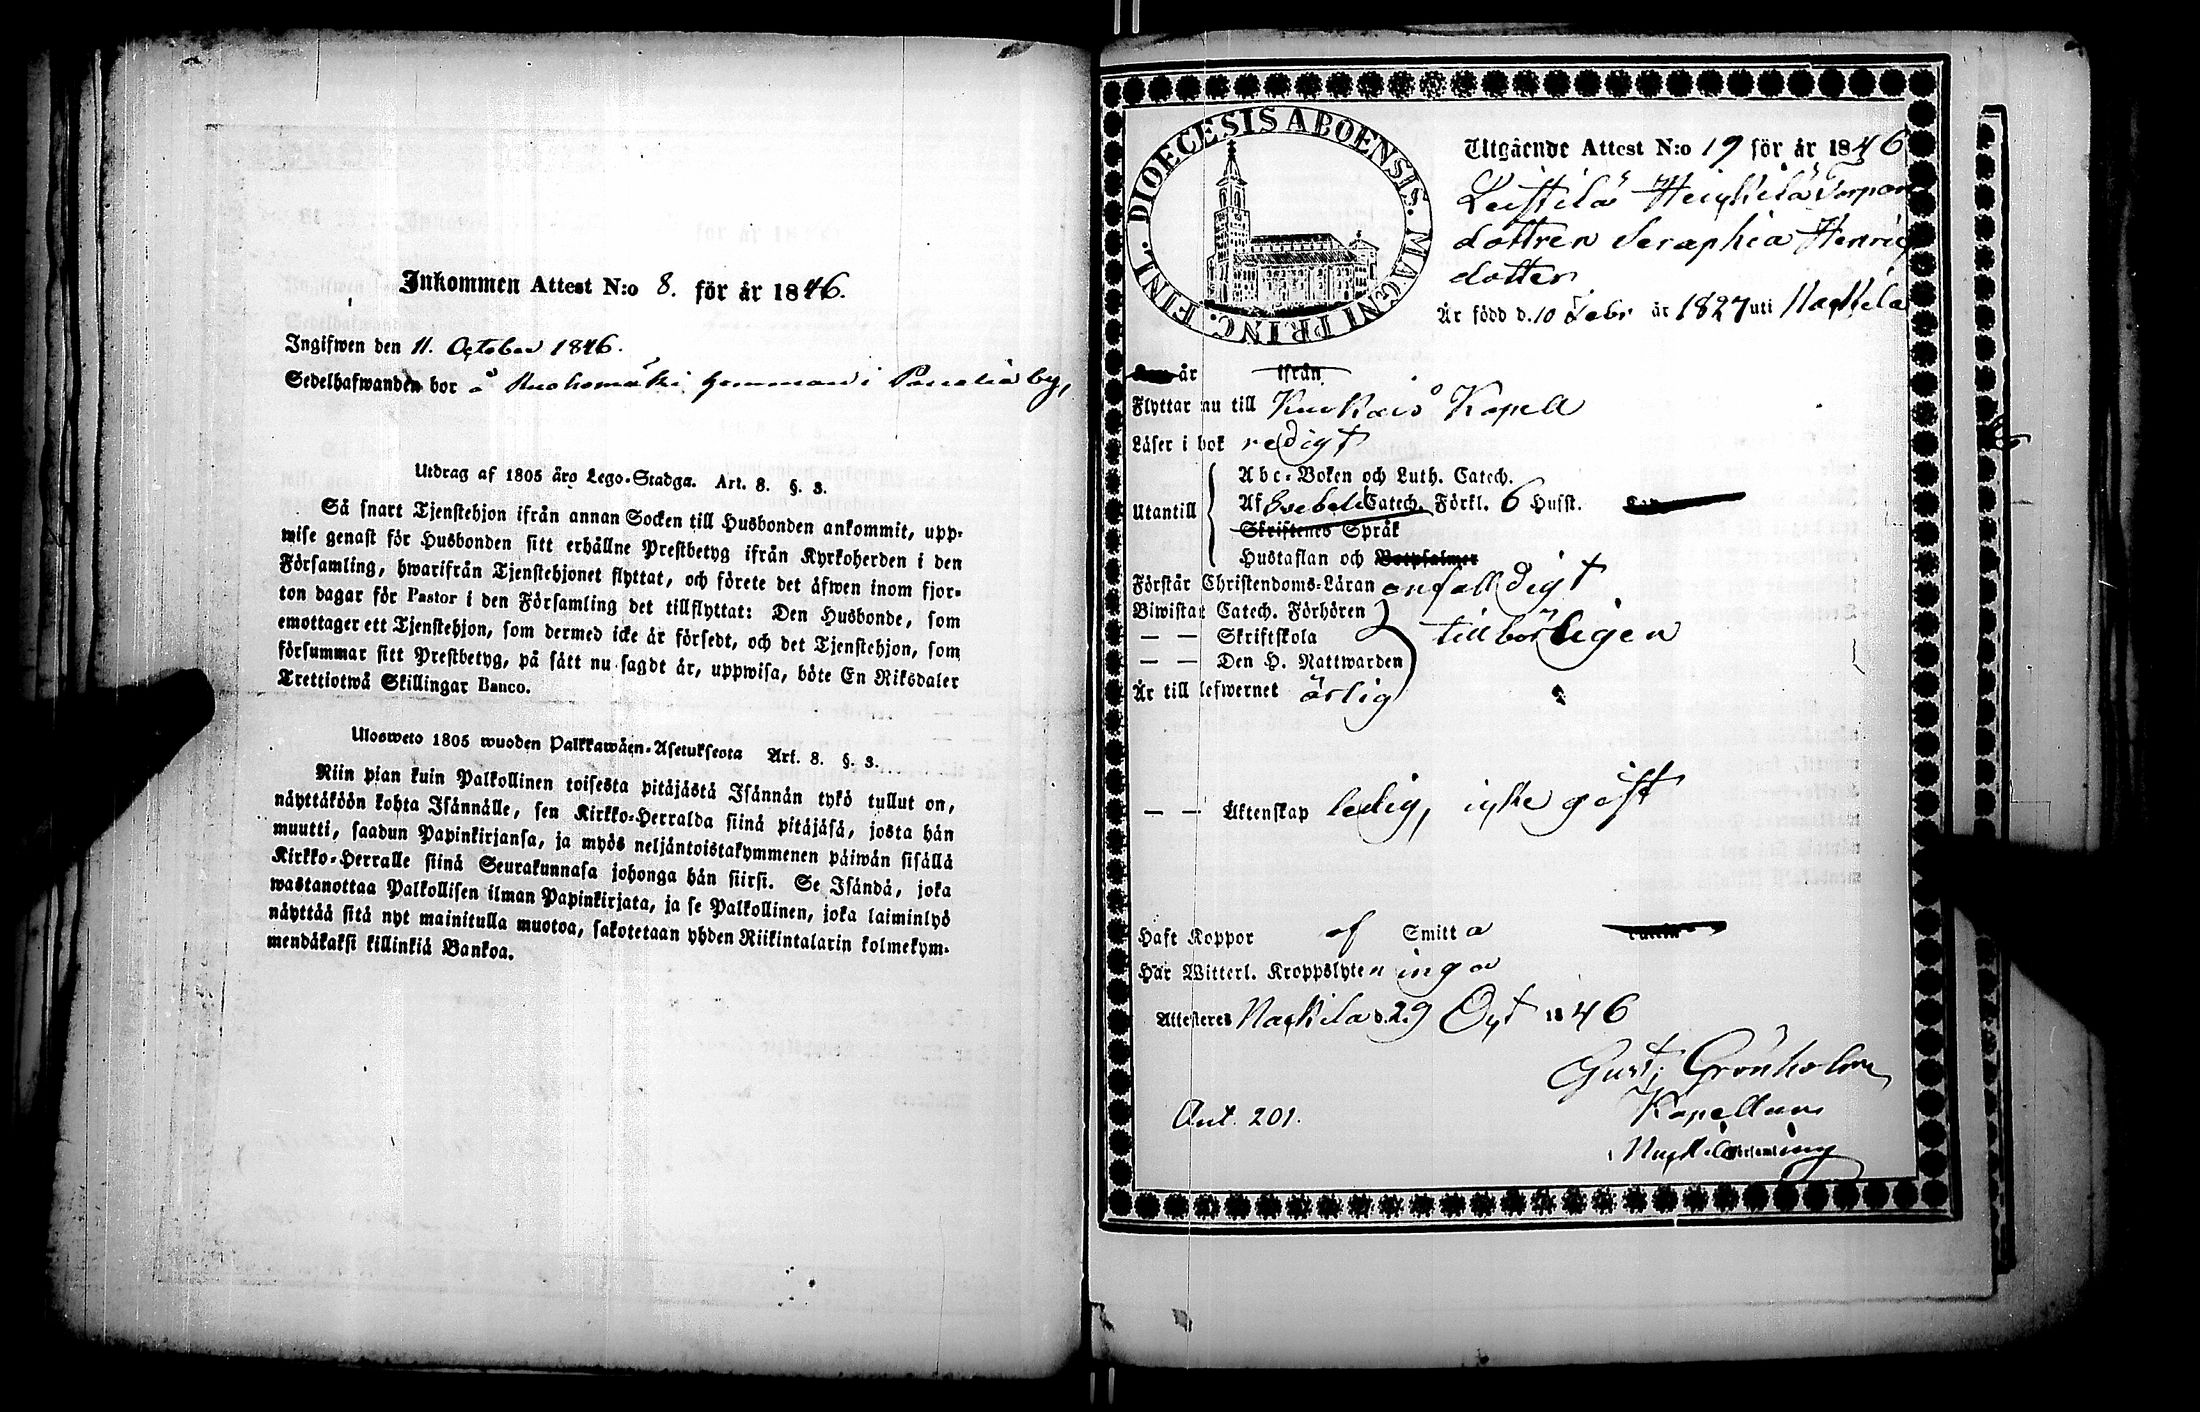 Inkommen Attest N:o 8. för år 1846.
Ingifwen den 11. October 1846.
Sedelhafwanden bor å Ruohomäki hemman i Panelia by,
Utdrag af 1805 års Lego-Stadga. Art. 8. §. 3.
Så snart Tjenstehjon ifrån annan Socken till Husbonden ankommit, upp-
wise genast för Husbonden sitt erhållne Prestbetyg ifrån Kyrkoherden i den
Församling, hwarifrån Tjenstehjonet flyttat, och förete det äfwen inom fjor-
ton dagar för Pastor i den Församling det tillflyttat: Den Husbonde, som
emottager ett Tjenstehjon, som dermed icke är försedt, och det Tjenstehjon, som
försummar sitt Prestbetyg, på sätt nu sagdt är, uppwisa, böte En Riksdaler
Trettiotwå Skillingar Banco.
Ulosweto 1805 wuoden Palkkawäen-Asetuksesta Art. 8. §. 3.
Niin pian kuin Palkollinen toisesta pitäjästä Isännän tykö tullut on,
näyttäköön kohta Isännälle, sen Kirkko-Herralda siinä pitäjäsä, josta hän
muutti, saadun Papinkirjansa, ja myös neljäntoistakymmenen päiwän sisällä
Kirkko-Herralle siinä Seurakunnasa johonga hän siirsi. Se Isändä, joka
wastanottaa Palkollisen ilman Papinkirjata, ja se Palkollinen, joka laiminlyö
näyttää sitä nyt mainitulla muotoa, sakotetaan yhden Riikintalarin kolmekym-
mendäkaksi killinkiä Bankoa.
DIOECESIS ABOENSIS. MAGNI PRINC. FINL.
Utgående Attest N:o 19 för år 1846
Leistilä Heikkilä Torpar
dottren Seraphia Henrics
dotter
Är född d. 10 Febr år 1827 uti Nackila
år ifrån
Flyttar nu till Kiukais Kapell
Läser i bok redigt
Abc-Boken och Luth. Catech.
Utantill Af Svebeli Catech. Förkl. 6 Husst.
Skriftenes Språk
Hustaflan och Botpsalmer
Förstår Christendoms-Läran enfalldigt
Biwistat Catech. Förhören
— — Skriftskola tillbörligen
— — Den H. Nattwarden
Är till lefwernet ärlig
— — Äktenskap ledig, icke gift
Haft Koppor af Smitta
Har Witterl. Kroppslyten inga
Attesteres Nackila d. 29 Oct 1846
Gust: Grönholm
Kapellan
Ant. 201.
i Nackila Församling